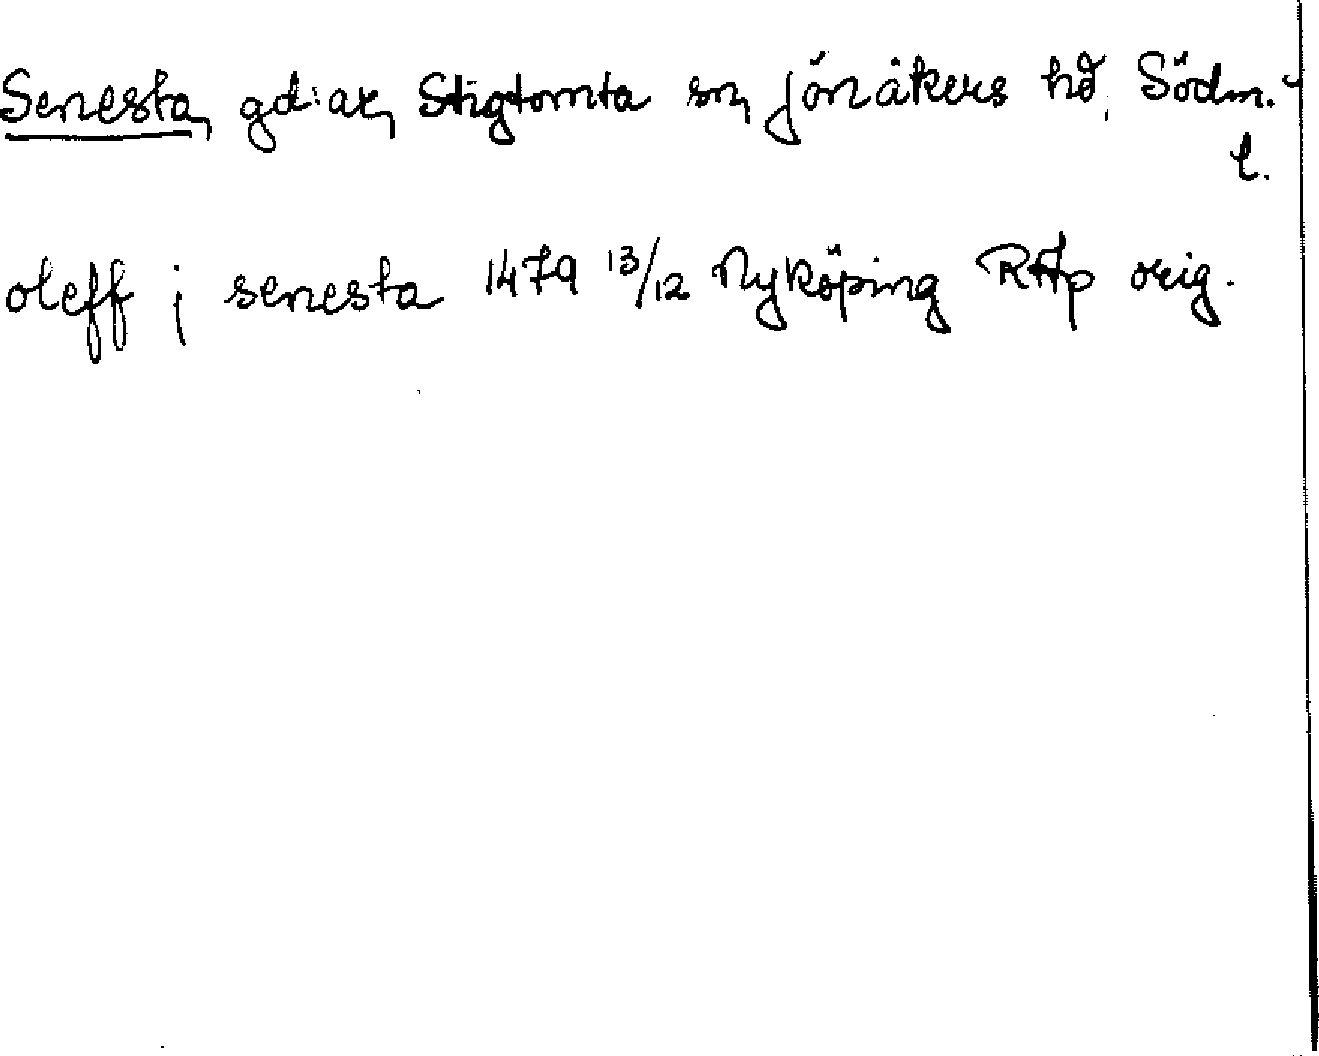 Senesta, gd:ar, Stigtomta sn, Jönåkers hd, Södm.-
l.
oleff j senesta 1479 13/12 Nyköping RAp orig.